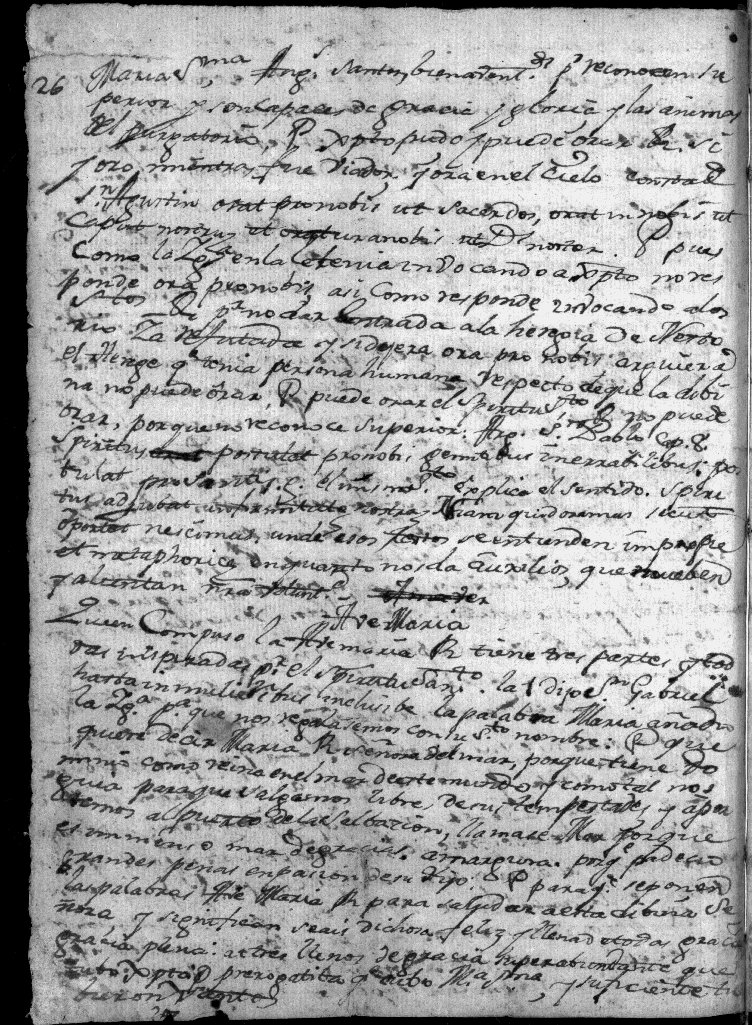 26 Maria Sma Angs santos, bienaventdos pr reconocen su
perior y son capaces de gracia y gloria y las animas
del purgatorio. P. Xpto pudo y puede orar R. si
y oro mientras fue viador, y ora en el Cielo consta de
Sn Agustin orat pro nobis ut sacerdos, orat in nobis ut
Caput nostrum ut oratur a nobis ut Ds noster. P pues
Como la Iga en la Letania invocando a Xpto no res
ponde ora pro nobis, asi Como responde invocando a los
Stos R pr no dar entrada a la heregia de Nesto
rio Ya refutada y si dijera ora pro nobis arguiera
el Herege qe tenia persona humana respecto de que la divi
na no puede orar, P puede orar el Spiritu Sto R no puede
orar, porque no reconoce superior. Arg. Sn Pablo Cap. 8.
Spiritus postulat pro nobis gemitibus inenarrabilibus, pos
tulat pro Santis el mismo explica el sentido. Spiri
tus adjubat nam quid oremus sicut
oportet nescimus, unde esos textos se entienden impropie
et metaphorice en quanto nos da Auxilios, que mueben
y alientan nra volunt
Ave Maria
Quien Compuso la Ave maria R tiene tres partes y tod
das inspiradas pr el Spiritu Santo. la 1 dijo Sn Gabriel
hasta in mulieribus inclusibe la palabra Maria añadio
la Iga pa que nos regalasemos con su Sto nombre: P que
quiere decir Maria R señora del mar, porque tiene do
minio como reina en el mar de este mundo y como tal nos
guia para que salgamos libres de sus tempestades y apor
temos al puerto de la Salbacion, llamase Mar porque
es inmenso mar de gracias. amargura. porqe padecio
grandes penas en pasion de su Hijo. P para qe se ponen
las palabras Ave Maria R para saludar a esta divina Se
ñora y significan seais dichosa feliz y llena de todas gracias
gracia plena: at tres llenos de gracia superabundante que
tubo Xpto prerogatiba qe tubo Ma Sma, y suficiente tu
bieron Santos